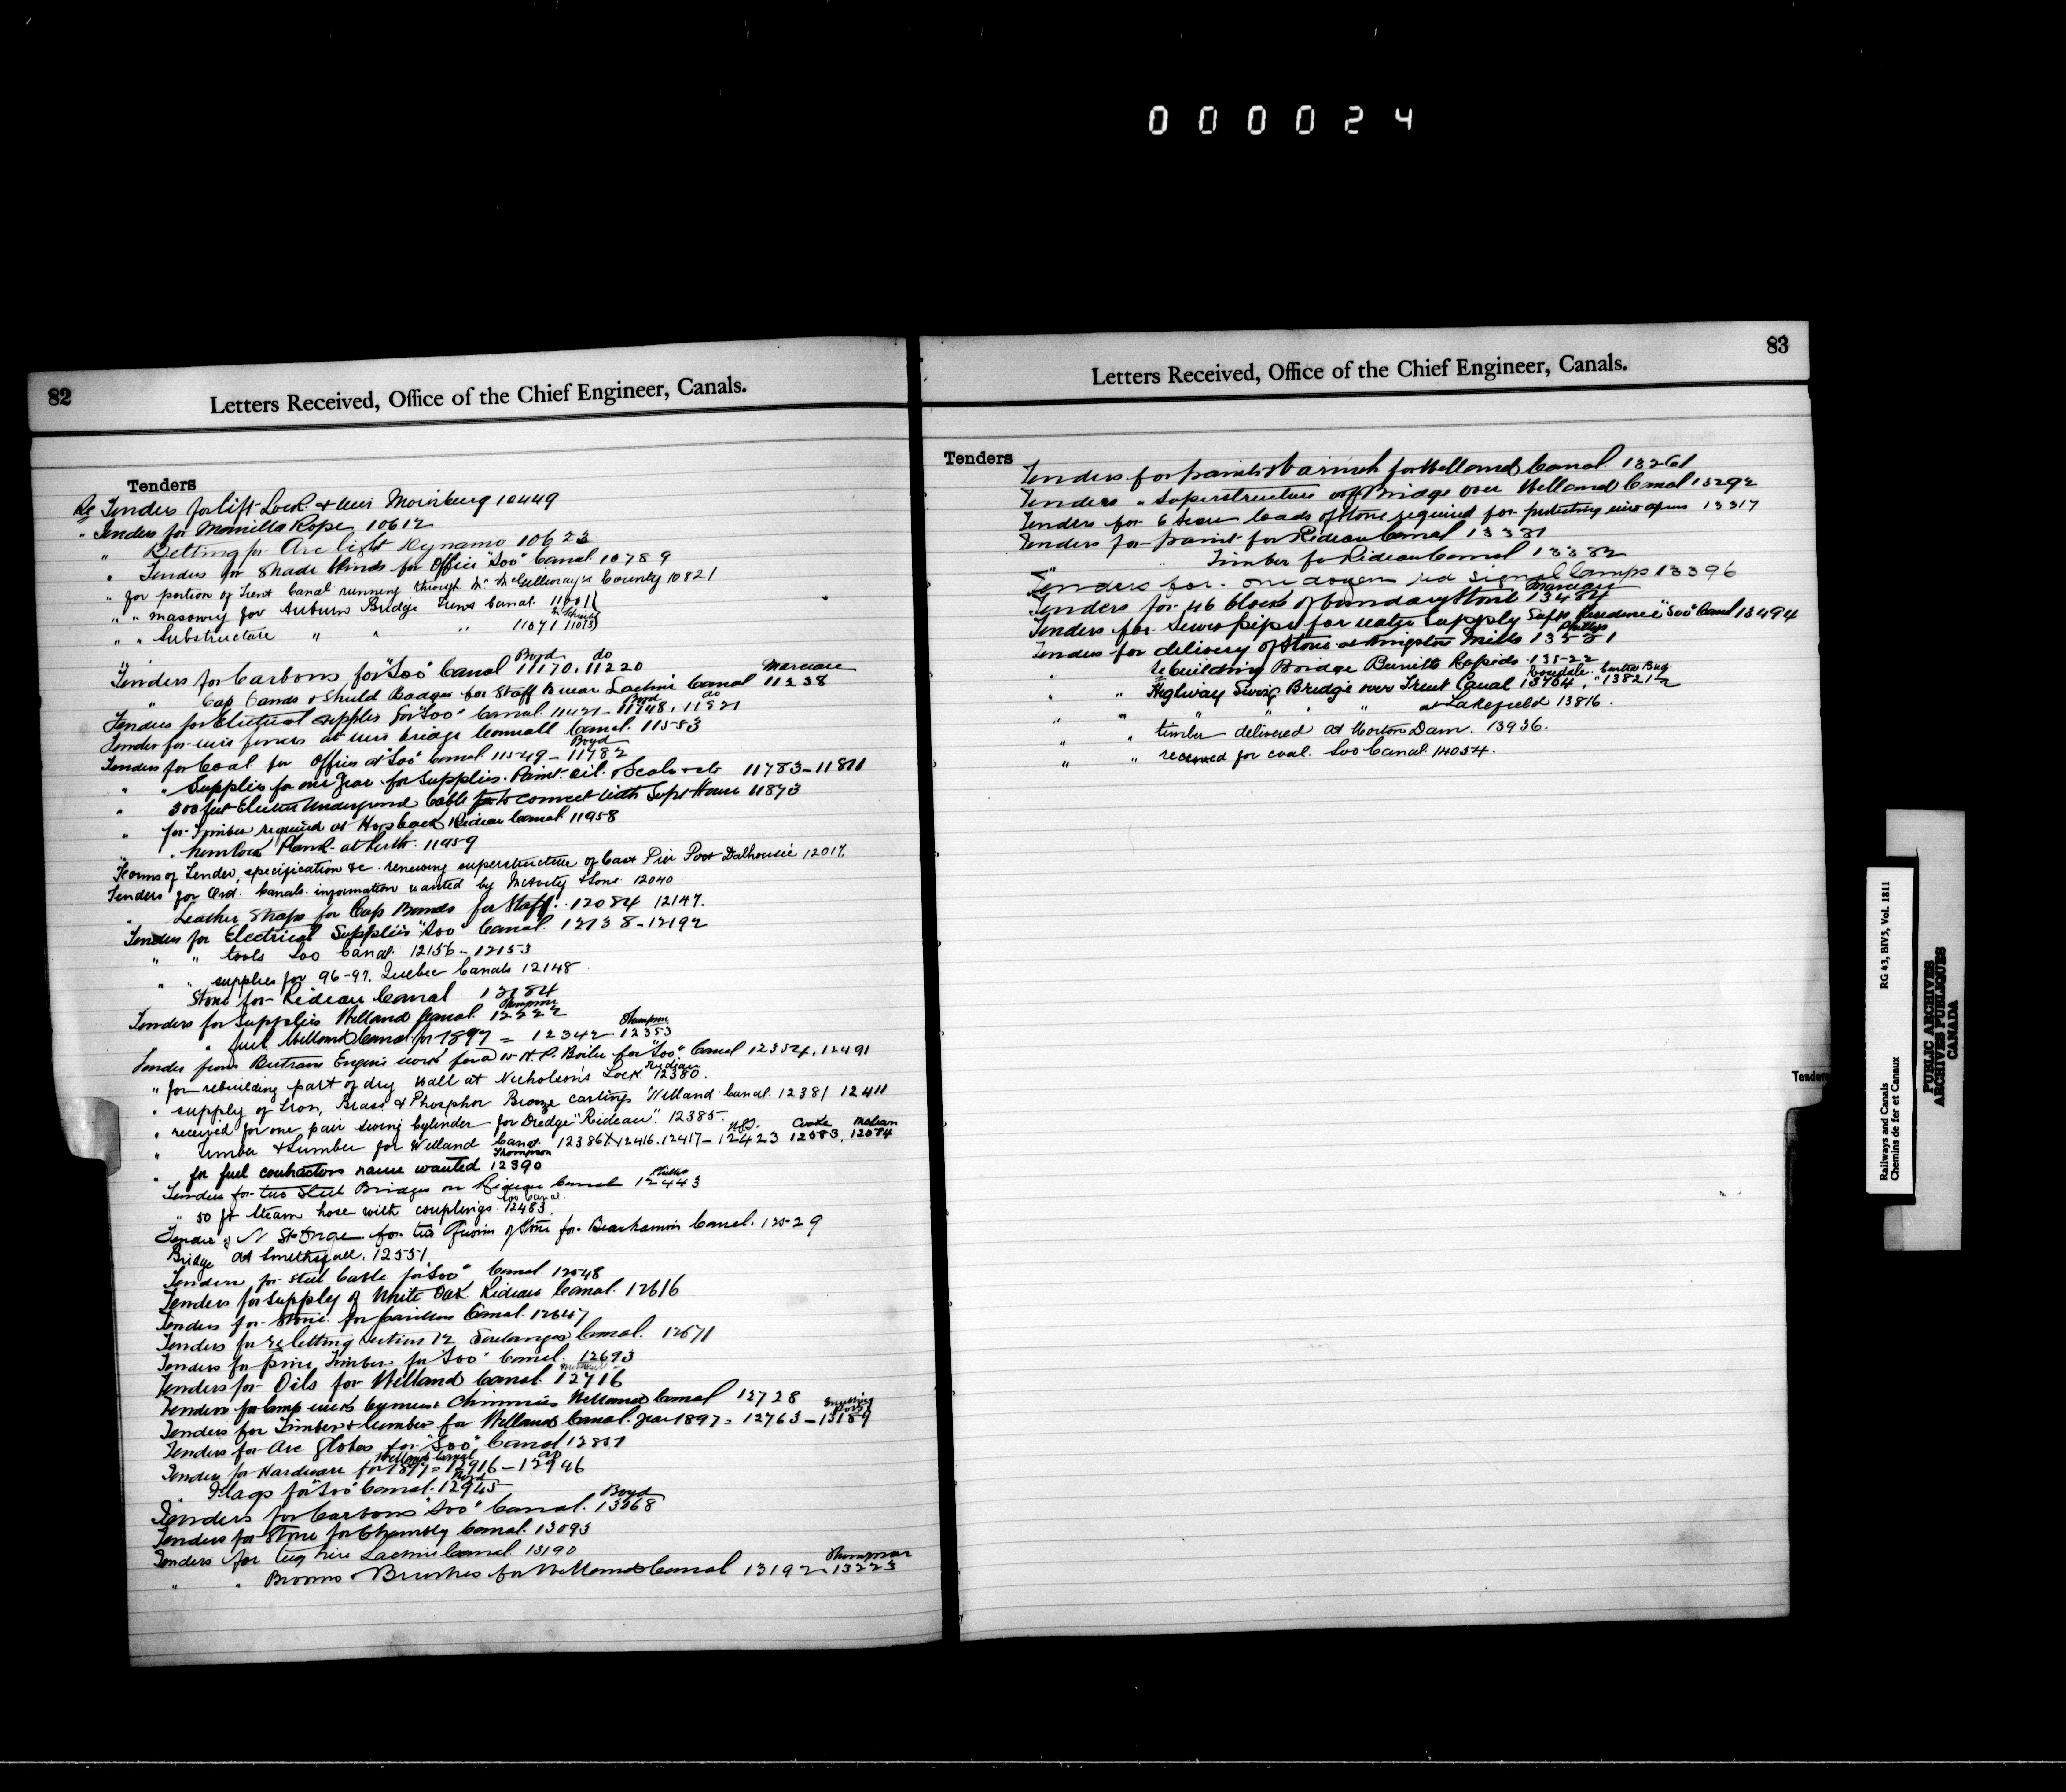 000024
82
Letters Received, Office of the Chief Engineer, Canals.
Tenders
Re Tenders for lift Lock & Weir 10449
" Tenders for Manilla Rope 10612
" Belting for Arc light Dynamo 10623
" Tenders for Shade blinds for Office "Soo" Canal 10789
" for portion of Trent Canal running through Mr McGillivray's County 10821
" " masonry for Auburn Bridge Trent Canal 11001
" " Substructure " " " 11071 11013
Boyd do
Tenders for Carbons for "Soo" Canal 11170. 11220
Marceau
" Cap Bands & Shield Badges for Staff Lachine Canal 11238
Boyd do
Tenders for Electrical supplies for "Soo" Canal 11421 - 11748, 11921
Tender for wire fences at Cornwall Canal. 11553
Boyd
Tenders for Coal for Offices at "Soo" Canal 11549 - 11782
" " Supplies for one year for supplies. Paint. oil. 11783-11811
" 300 feet Electric Underground Cable to connect with Supt House 11873
" for Timber required at Hogsback Rideau Canal 11958
" " hemlock Plank at Perth. 11959
Forms of Tender, specification &c. renewing superstructure of East Pier Port Dalhousie 12017
Tenders for Ord. Canals. information wanted by McAvity & Sons 12040
" Leather Straps for Cap Bands for Staff. 12084 12147.
Tenders for Electrical Supplies "Soo" Canal. 12138-12192
" " tools Soo Canal. 12156 - 12153
" " supplies for 96-97. Quebec Canals 12148
Stone for Rideau Canal 12184
Thompson
Tenders for Supplies Welland Canal. 12222
Thompson
" fuel Welland Canal for 1897 = 12342 - 12353
Tender from Bertram Engine works for H.P. Boiler for "Soo" Canal 12354, 12491
" for rebuilding part of dry wall at Nicholson's Lock 12380.
" supply of Iron, Brass & Phosphor Bronze castings Welland Canal. 12381 12411
" received for one pair swing Cylinder for Dredge "Rideau". 12385.
Cooke McLean
" Timber & Lumber for Welland Canal 12386 12416. 12417 - 12423 12083, 12074
Thompson
" for fuel contractors name wanted 12390
Phillips
Tenders for two Steel Bridges on Rideau Canal 12443
Soo Canal
" 50 ft Steam hose with couplings. 12483.
Tender of N St Onge for Stone for Beauharnois Canal. 12529
Bridge at 12551
Tenders for steel Cable for "Soo" Canal. 12548
Tenders for Supply of White Oak Rideau Canal. 12616
Tenders for Stone for Canal. 12647
Tenders for reletting Section 12 Soulanges Canal. 12671
Tenders for pine Timber for "Soo" Canal. 12693
Tenders for Oils for Welland Canal. 12716
Tenders for lamp wicks burners Chimnies Welland Canal 12728
Tenders for Timber & lumber for Welland Canal. year 1897 = 12763 - 13189
Tenders for Arc Globes for "Soo" Canal 12851
Welland Canal do
Tenders for Hardware for 1897 = 12916 - 12946
Boyd
" Flags for "Soo" Canal. 12945
Boyd
Tenders for Carbons "Soo" Canal. 13068
Tenders for Stone for Chambly Canal. 13093
Tenders for Tug hire Lachine Canal 13190
Thompson
" " Brooms & Brushes for Welland Canal 13192. 13223
83
Letters Received, Office of the Chief Engineer, Canals.
Tenders
Tenders for paints & varnish for Welland Canal. 13261
Tenders " Superstructure of Bridge over Welland Canal 13292
Tenders for 6 Scow loads of Stone required for protecting 13317
Tenders for paint for Rideau Canal 13381
" " Timber for Rideau Canal 13382
Tenders for one dozen red signal lamps 13396
Marceau
Tenders for 46 blocks of boundary Stone 13484
Tenders for Sewer pipe for water Supply Supt Residence "Soo" Canal 13494
Phillips
Tenders for delivery of Stone at Kingston Mills 13521
" rebuilding Bridge Burritts Rapids. 13522
Rosedale
" " Highway Swing Bridge over Trent Canal 13704, 13821½
" " " " " at Lakefield 13816.
" " timber delivered at Morton Dam. 13936.
" " received for coal. Soo Canal 14054.
Tenders
Railways and Canals RG 43, BIV5, Vol. 1811
Chemins de fer et Canaux
PUBLIC ARCHIVES
ARCHIVES PUBLIQUES
CANADA